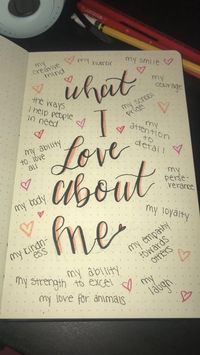 my creative mind
my humor
my smile
my courage
what
the ways
I help people
in need
my school
pride
I
my attention
to
detail
my ability
to love
all
Love
my
perse-
verance
about
my body
my loyalty
me
my kind-
ess
my empathy
towards
others
my ability
my strength to excel
my
laugh
my love for animals